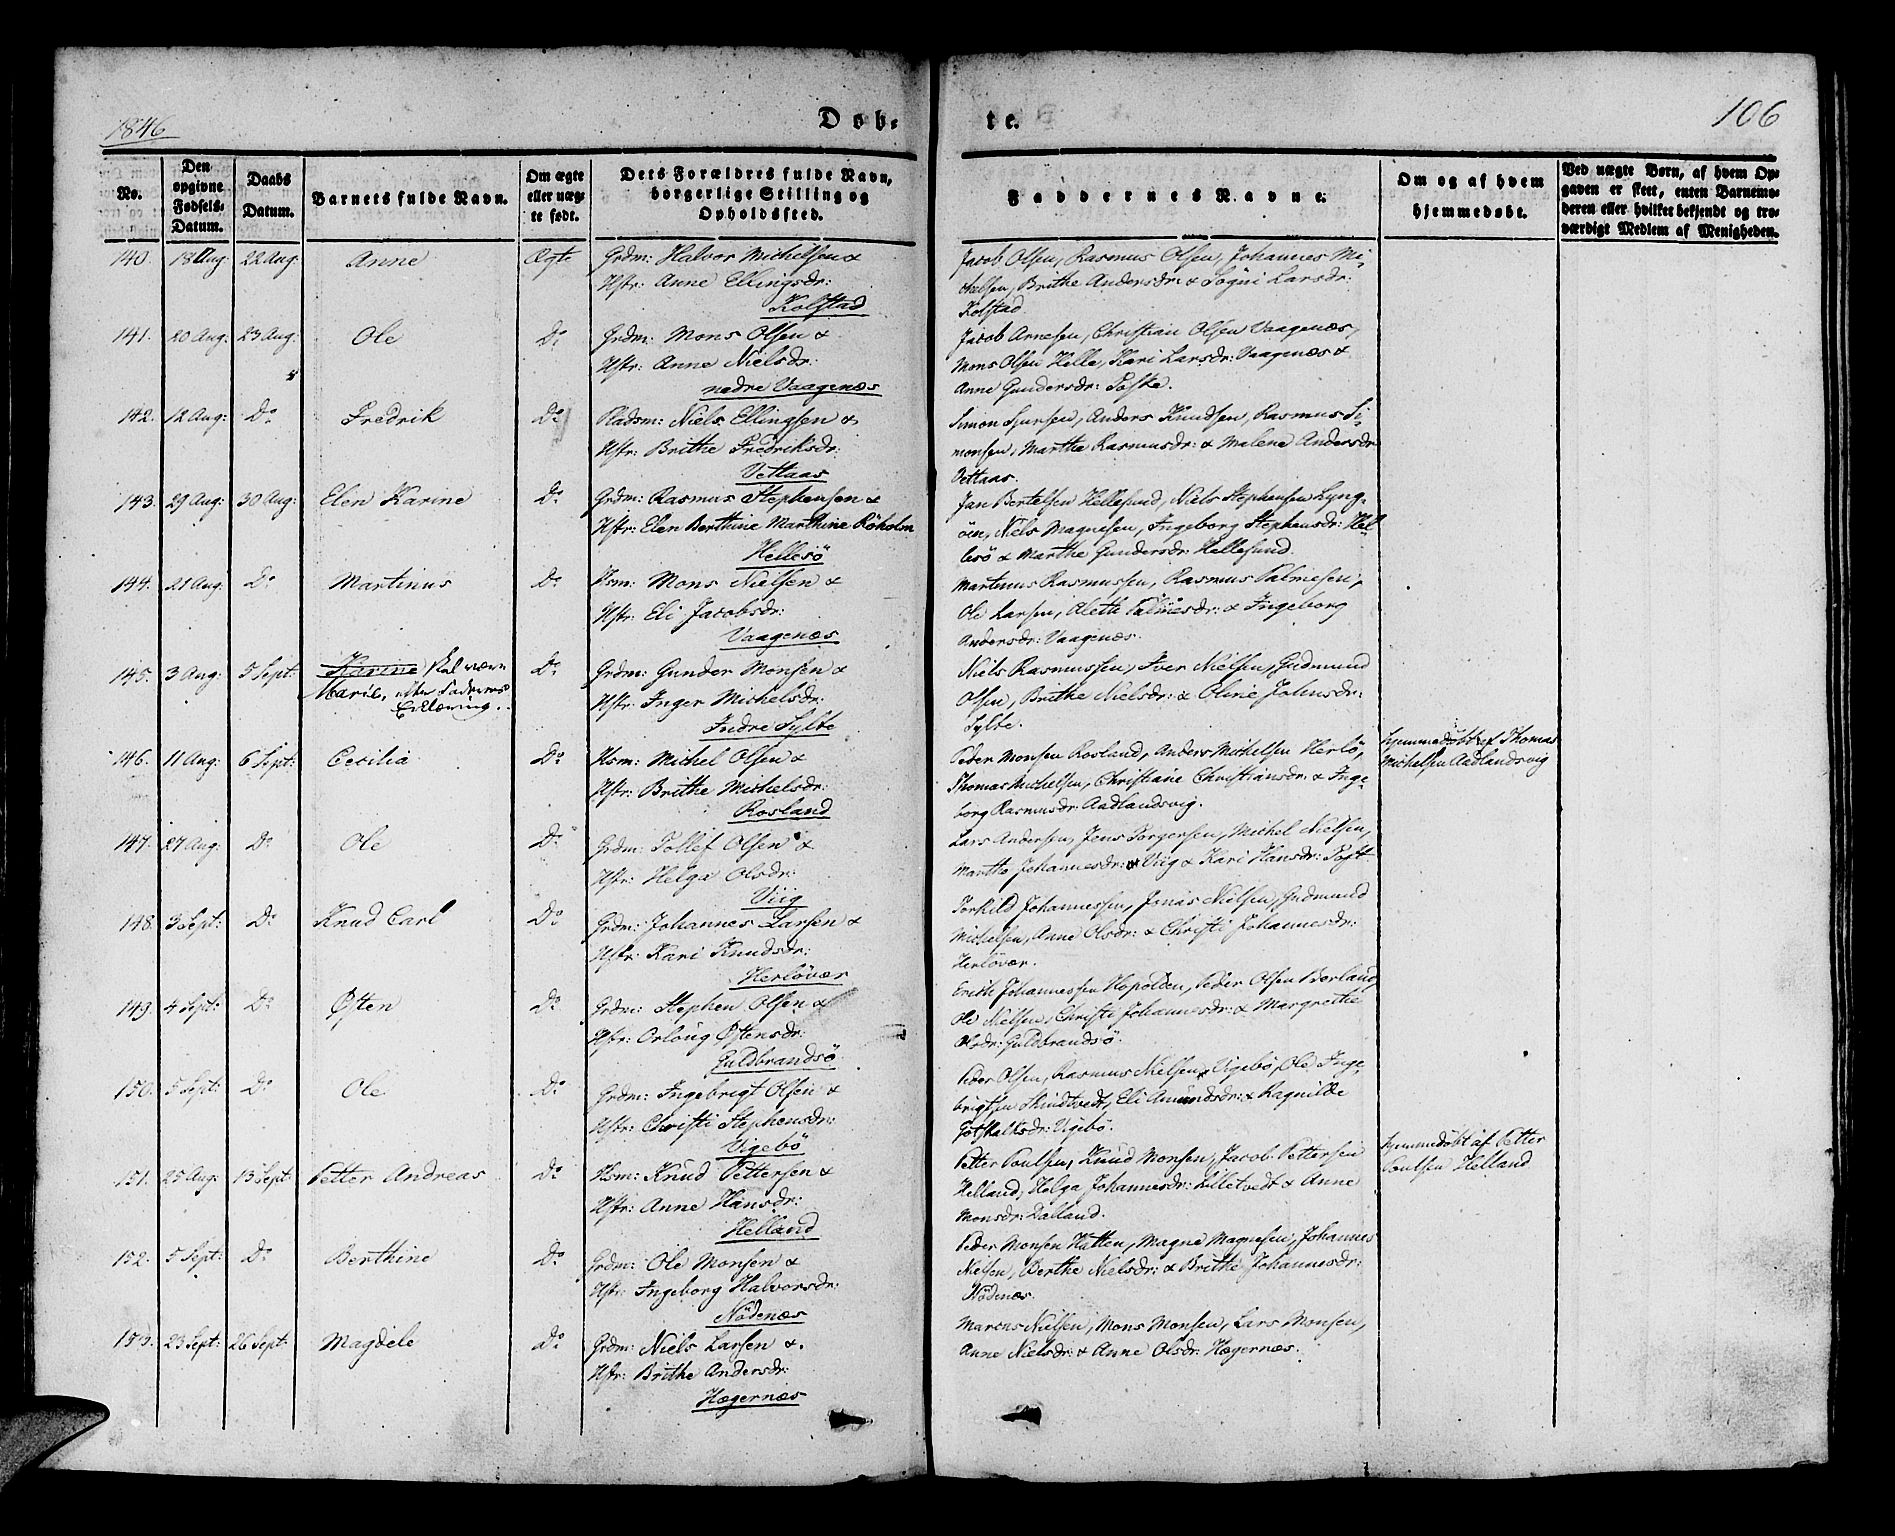 1846
Døb-
te.
106
No.
Den opgivne Fødsels-Datum.
Daabs Datum.
Barnets fulde Navn.
Om ægte eller uægte født.
Dets Forældres fulde Navn, borgerlige Stilling og Opholdssted.
Faddernes Navne.
Om og af hvem hjemmedøbt.
Ved uægte Børn, af hvem Opgaven er skeet, enten Barnemoderen eller hvilket bekjendt og troværdigt Medlem af Menigheden.
140. 18 Aug: 22 Aug: Anne Ægte Grdm: Halvor Michelsen &
Hstr: Anne Ellingsdr:
Kolstad
Jacob Olsen, Rasmus Olsen, Johannes Mi-
chelsen, Brithe Andersdr: & Sögni Larsdr:
Kolstad
141. 20 Aug: 23 Aug: Ole Do Grdm: Mons Olsen &
Hstr: Anne Nielsdr:
nedre Vaagenæs
Jacob Arnesen, Christian Olsen Vaagenæs,
Mons Olsen Helle, Kari Larsdr: Vaagenæs &
Anne Gundersdr: Toske.
142. 12 Aug: Do Fredrik Do Pladsm: Niels Ellingsen &
Hstr: Brithe Fredriksdr:
Vettaas
Simon Sjursen, Anders Knudsen, Rasmus Si-
monsen, Marthe Rasmusdr: & Malene Andersdr:
Vettaas.
143. 29 Aug: 30 Aug: Elen Karine Do Grdm: Rasmus Stephensen &
Hstr: Elen Berthine Marthine Röholm
Hellesö
Jan Bertelsen Hellesund, Niels Stephensen Lyng-
öen, Niels Magnesen, Ingeborg Stephensdr: Hel-
lesö & Marthe Gundersdr: Hellesund.
144. 21 Aug: Do Martinus Do Hsm: Mons Nielsen &
Hstr: Eli Jacobsdr:
Vaagenæs
Martinus Rasmussen, Rasmus Palmesen,
Ole Larsen, Aleth Palmesdr: & Ingeborg
Andersdr: Vaagenæs.
145. 3 Aug: 5 Sept: Karine skal være
Marie, efter Faderens
Erklæring. Do Grdm: Gunder Monsen &
Hstr: Inger Michelsdr:
Indre Sylte
Niels Rasmussen, Iver Nielsen, Gudmund
Olsen, Brithe Nielsdr: & Oline Johnsdr:
Sylte.
146. 11 Aug: 6 Sept: Cecilia Do Hsm: Michel Olsen &
Hstr: Brithe Michelsdr:
Rosland
Peder Monsen Rosland, Anders Michelsen Herlö,
Thomas Michelsen, Christiane Christiansdr: & Inge-
borg Rasmusdr: Aadlandsvig.
hjemmedöbt af Thomas
Michelsen Aadlandsvig
147. 27 Aug: Do Ole Do Grdm: Tollef Olsen &
Hstr: Helga Olsdr:
Viig
Lars Andersen, Jens Torgersen, Michel Nielsen,
Marthe Johannesdr: Viig & Kari Hansdr: Toft
148. 3 Sept: Do Knud Carl Do Grdm: Johannes Larsen &
Hstr: Kari Knudsdr:
Herlövær
Torkild Johannessen, Jonas Nielsen, Gudmund
Michelsen, Anne Olsdr: & Christi Johannesdr:
Herlövær.
149. 4 Sept: Do Østen Do Grdm: Stephen Olsen &
Hstr: Orloug Østensdr:
Guldbrandsö
Erich Johannessen Hopolden, Peder Olsen Berland,
Ole Nielsen, Christi Johannesdr: & Margrethe
Olsdr: Guldbrandsö.
150. 5 Sept: Do Ole Do Grdm: Ingebrigt Olsen &
Hstr: Christi Stephensdr:
Vigebö
Peder Olsen, Rasmus Nielsen Vigebö, Ole Inge-
brigtsen Skindtvedt, Eli Amundsdr: & Ragnilde
Gotskalksdr: Vigebö.
151. 25 Aug: 13 Sept: Petter Andreas Do Hsm: Knud Pettersen &
Hstr: Anne Hansdr:
Helland
Petter Poulsen, Knud Monsen, Jacob Pettersen
Helland, Helga Johannesdr: Lilletvedt & Anne
Monsdr: Dalland.
hjemmedöbt af Petter
Poulsen Helland
152. 5 Sept: Do Berthine Do Grdm: Ole Monsen &
Hstr: Ingeborg Halvorsdr:
Nödenæs
Peder Monsen Hatten, Magne Magnesen, Johannes
Nielsen, Berthe Nielsdr: & Brithe Johannesdr:
Nödenæs.
153. 23 Sept: 26 Sept: Magdele Do Grdm: Niels Larsen &
Hstr: Brithe Andersdr:
Hægernæs
Marcus Nielsen, Mons Monsen, Lars Monsen,
Anne Nielsdr: & Anne Olsdr: Hægernæs.